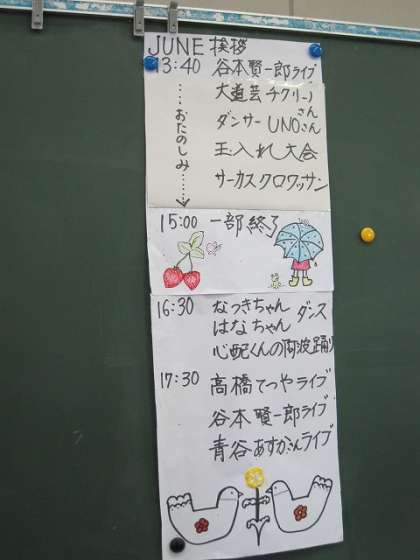 JUNE 挨拶
13:40 谷本賢一郎ライブ
大道芸チクリーノ
さん
ダンサー UNOさん
玉入れ大会
サーカスクロワッサン
……おたのしみ……→
15:00 一部終了
16:30 なつきちゃん ダンス
はなちゃん
心配くんの阿波踊り
17:30 高橋てつやライブ
谷本賢一郎ライブ
青谷あすかさんライブ